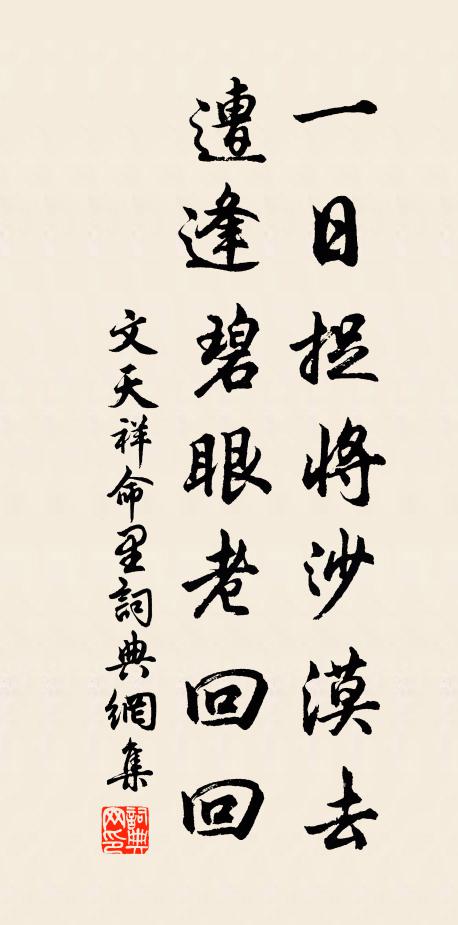 一日捉將沙漠去
遭逢碧眼老回回
文天祥命里詞典網集
詞典网印